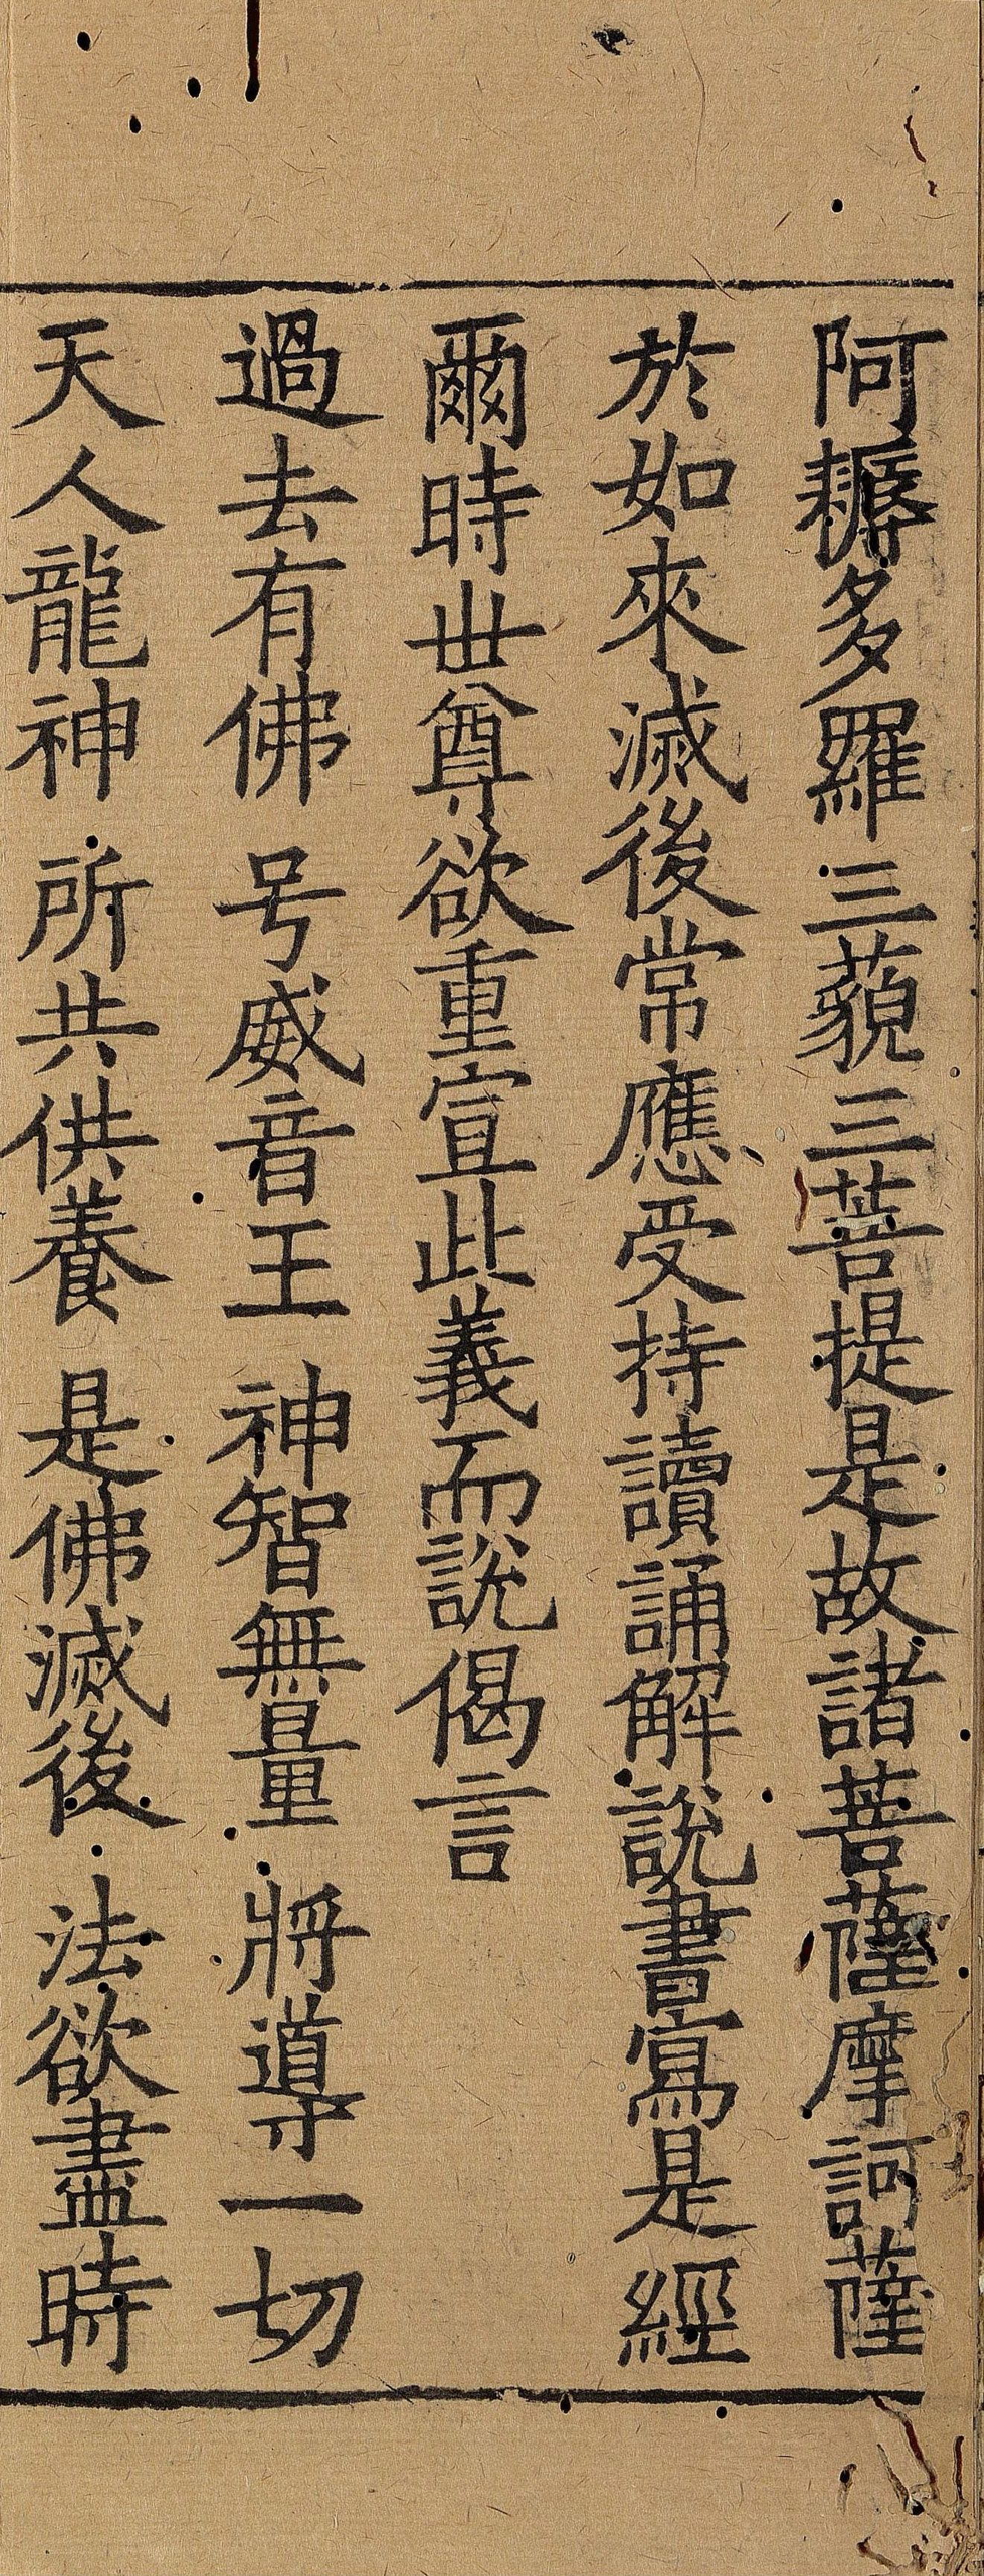 阿耨多羅三藐三菩提是故諸菩薩摩訶薩
於如來滅後常應受持讀誦解說書寫是經
爾時世尊欲重宣此義而說偈言
過去有佛 号威音王 神智無量 將導一切
天人龍神 所共供養 是佛滅後 法欲盡時